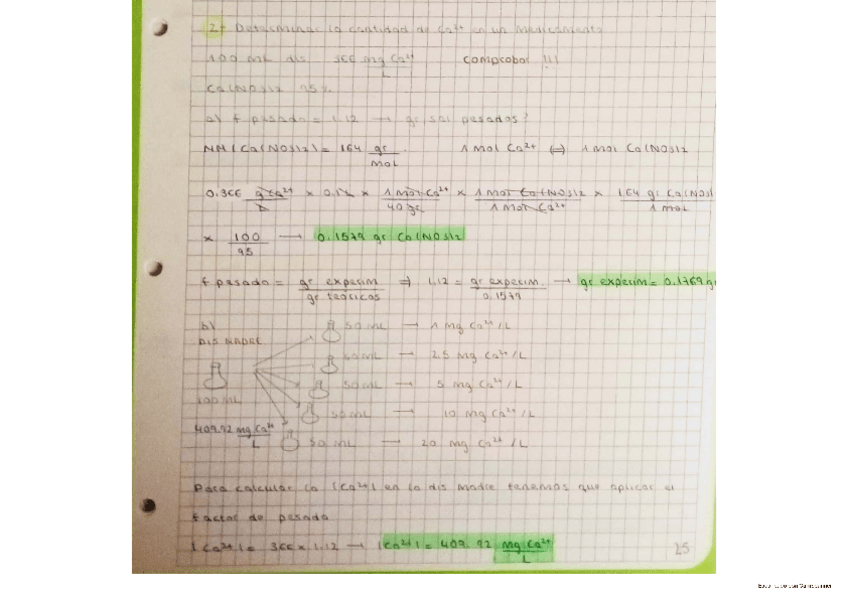 2- Determinar la cantidad de Ca²⁺ en un medicamento
100 mL dis 366 mg Ca²⁺/L comprobar !!!
Ca(NO3)2 95%
a) f pesada = 1.12 → gr sal pesados?
MM (Ca(NO3)2) = 164 gr/mol 1 mol Ca²⁺ ⇔ 1 mol Ca(NO3)2
0.366 gr Ca²⁺/L × 0.1L × 1 mol Ca²⁺/40 gr × 1 mol Ca(NO3)2/1 mol Ca²⁺ × 164 gr Ca(NO3)/1 mol
× 100/95 → 0.1579 gr Ca(NO3)2
f pesada = gr experim/gr teóricos ⇒ 1.12 = gr experim/0.1579 → gr experim = 0.1769 gr
b) 50 mL → 1 mg Ca²⁺/L
DIS MADRE
50 mL → 2.5 mg Ca²⁺/L
50 mL → 5 mg Ca²⁺/L
100 mL
50 mL → 10 mg Ca²⁺/L
409.92 mg Ca²⁺/L
50 mL → 20 mg Ca²⁺/L
Para calcular la [Ca²⁺] en la dis madre tenemos que aplicar el
factor de pesada
[Ca²⁺] = 366 × 1.12 → [Ca²⁺] = 409.92 mg Ca²⁺/L
25